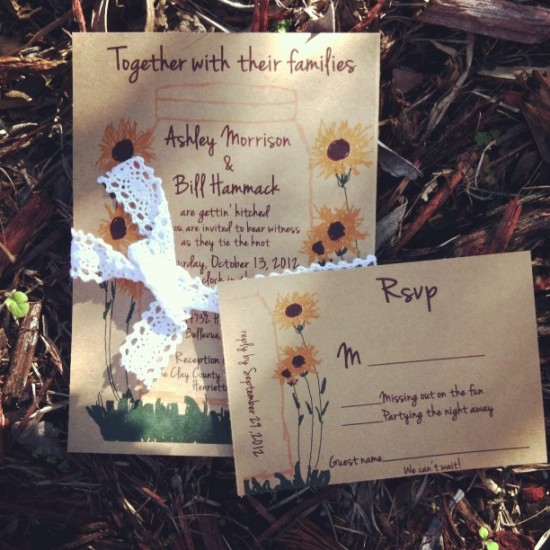 Together with their families
Ashley Morrison
&
Bill Hammack
are gettin' hitched
you are invited to bear witness
as they tie the knot
October 13, 2012
Reception
Clay County
Rsvp
M
Missing out on the fun
Partying the night away
Guest name
We can't wait!
reply by September 29, 2012